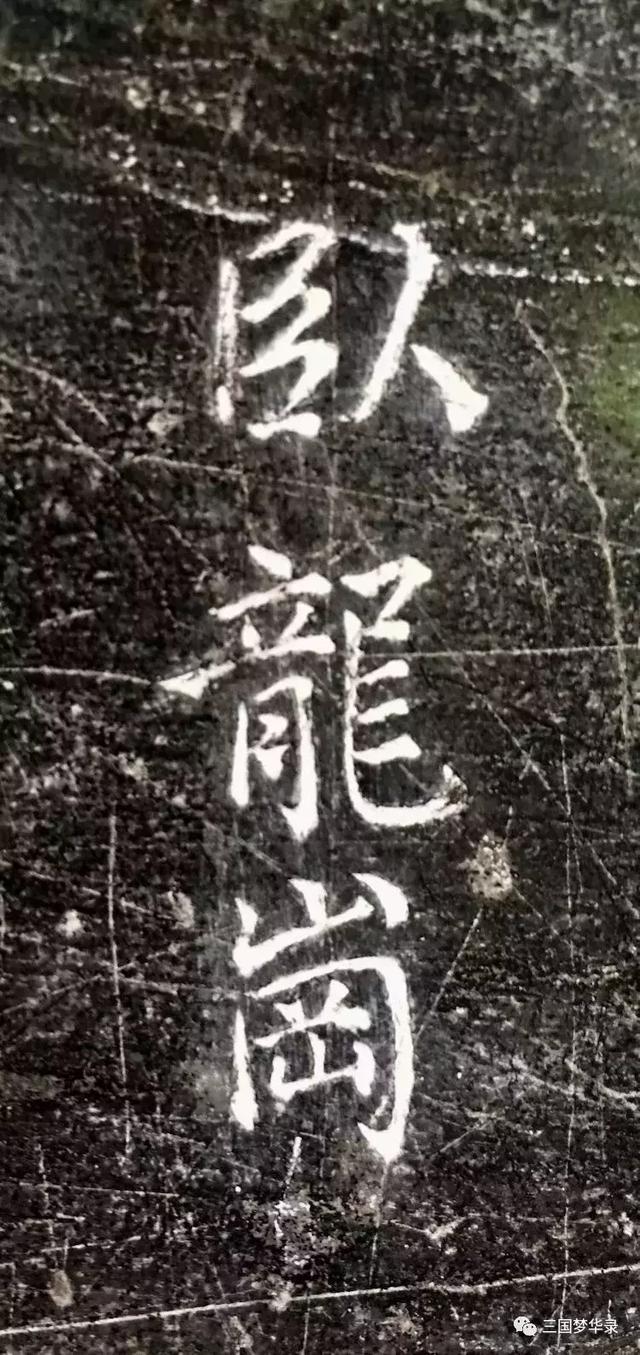 臥龍崗
三国梦华录